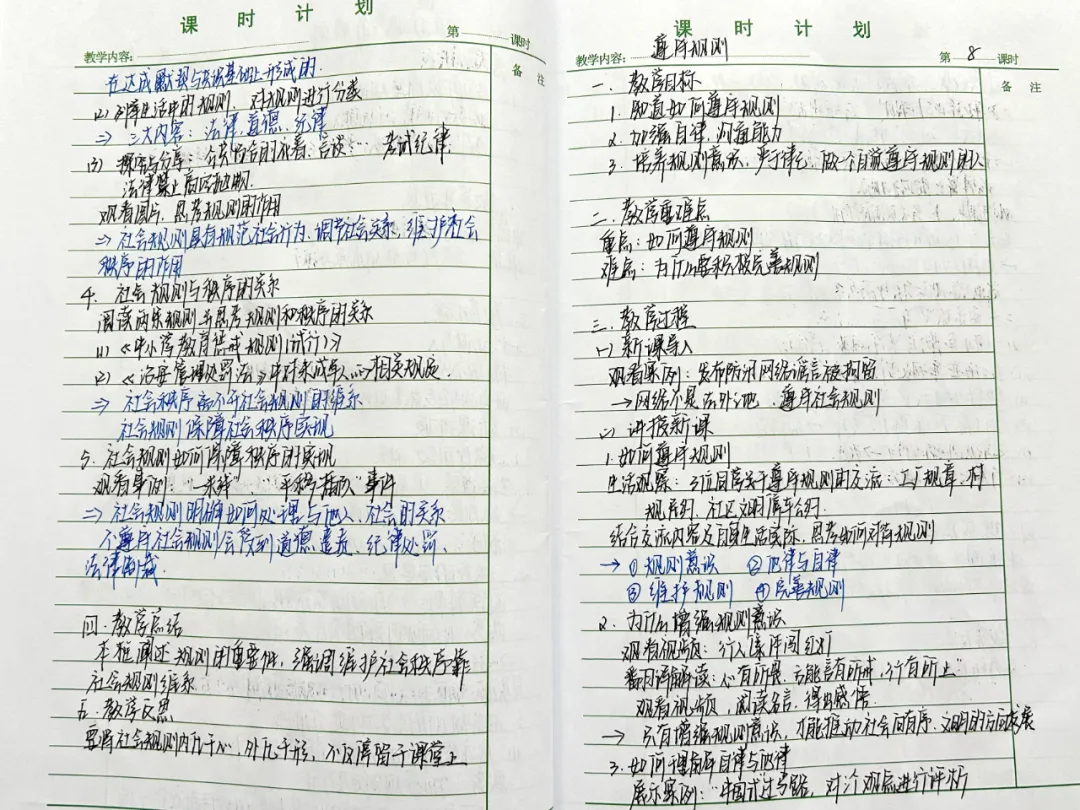 课 时 计 划
教学内容: 第 课时
备 注
在达成默契与共识基础上形成的.
(2) 列举生活中的规则, 对规则进行分类
⇒ 三大内容: 法律, 道德, 纪律
(3) 探究与分享: 公共场合的衣着、言谈…… 考试纪律,
法律禁止高空抛物.
观看图片, 思考规则的作用
⇒ 社会规则具有规范社会行为、调节社会关系、维护社会
秩序的作用
4. 社会规则与秩序的关系
阅读两条规则并思考规则和秩序的关系
(1)《中小学教育惩戒规则(试行)》
(2)《治安管理处罚法》中对未成年人的相关规定.
⇒ 社会秩序离不开社会规则的维系
社会规则保障社会秩序实现
5. 社会规则如何保障秩序的实现
观看事例: "一米秤" 插队"事件
⇒ 社会规则明确如何处理与他人、社会的关系
不遵守社会规则会受到道德谴责、纪律处罚、
法律制裁.
四. 教学总结
本框阐述规则的重要性, 强调维护社会秩序靠
社会规则维系
五. 教学反思
要将社会规则内化于心、外化于形, 不仅停留于课堂上
课 时 计 划
教学内容: 遵守规则 第 8 课时
备 注
一. 教学目标
1. 知道如何遵守规则
2. 加强自律, 沟通能力
3. 培养规则意识, 严于律己, 做个自觉遵守规则的人
二. 教学重难点
重点: 如何遵守规则
难点: 为什么要积极完善规则
三. 教学过程
(一) 新课导入
观看案例: 发布防汛网络谣言被拘留
→ 网络不是法外之地, 遵守社会规则
(二) 讲授新课
1. 如何遵守规则
生活观察: 3位同学关于遵守规则的交流: 工厂规章, 村
规民约, 社区文明停车公约.
结合交流内容及自身生活实际, 思考如何对待规则
→ ① 规则意识 ② 他律与自律
③ 维护规则 ④ 完善规则
2. 为什么增强规则意识
观看视频: 行人逆闯红灯
翻译解读: "心有所畏, 方能言有所戒, 行有所止"
观看视频, 阅读名言, 得出感悟
→ 只有增强规则意识, 才能推动社会向有序、文明的方向发展
3. 如何理解自律与他律
展示案例: "中国式过马路, 对个观点进行评析